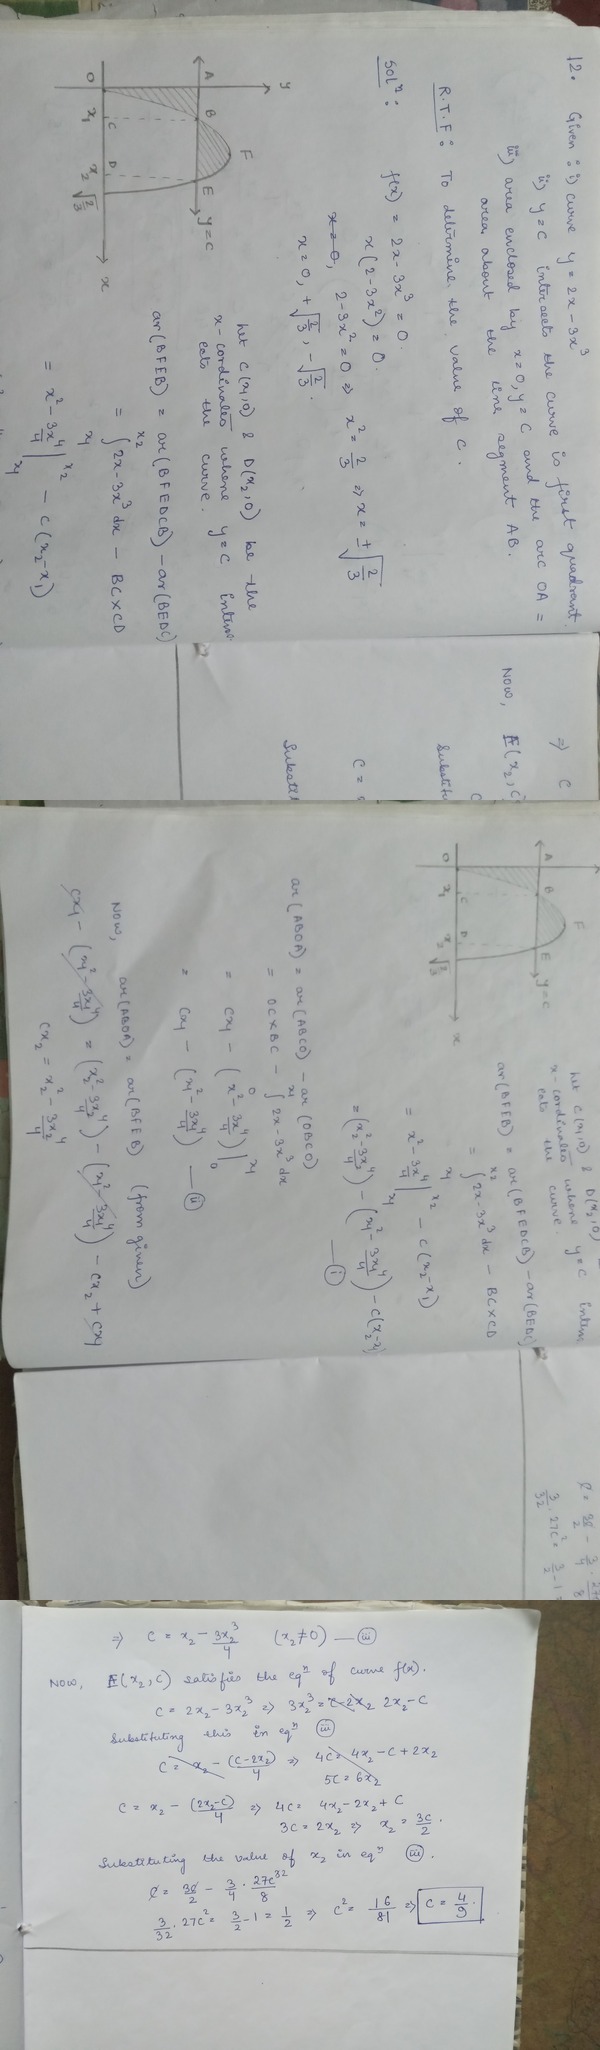 12. Given: i) curve y = 2x - 3x³
ii) y = c intersects the curve is first quadrant.
iii) area enclosed by x=0, y=c and the arc OA =
area about the line segment AB.
R.T.F: To determine the value of c.
Solⁿ: f(x) = 2x - 3x³ = 0.
x(2 - 3x²) = 0.
x = 0, 2 - 3x² = 0 ⇒ x² = 2/3 ⇒ x = ±√(2/3)
x = 0, +√(2/3), -√(2/3).
y
A B F E y=c
O x₁ C D x₂ √(2/3) x
Let C(x₁,0) & D(x₂,0) be the
x-cordinates where y=c inter
cets the curve.
ar(BFEB) = ar(BFEDCB) - ar(BEDC)
= ∫ₓ₁ˣ² 2x - 3x³ dx - BC×CD
= x² - 3x⁴/4 |ₓ₁ˣ² - c(x₂-x₁)
⇒ C
Now, E(x₂, c
Substitu
C
C =
Substit
y=c
A B F E
O x₁ C D x₂ √(2/3) x
Let C(x₁,0) & D(x₂,0)
x-cordinates where y=c inter
cets the curve.
ar(BFEB) = ar(BFEDCB) - ar(BEDC)
= ∫ₓ₁ˣ² 2x - 3x³ dx - BC×CD
= x² - 3x⁴/4 |ₓ₁ˣ² - c(x₂-x₁)
= (x₂² - 3x₂⁴/4) - (x₁² - 3x₁⁴/4) - c(x₂-x₁)
— (i)
ar(ABOA) = ar(ABCO) - ar(OBCO)
= OC×BC - ∫₀ˣ¹ 2x - 3x³ dx
= cx₁ - (x² - 3x⁴/4)|₀ˣ¹
= cx₁ - (x₁² - 3x₁⁴/4) — (ii)
Now, ar(ABOA) = ar(BFEB) (from given)
cx₁ - (x₁² - 3x₁⁴/4) = (x₂² - 3x₂⁴/4) - (x₁² - 3x₁⁴/4) - cx₂ + cx₁
cx₂ = x₂² - 3x₂⁴/4
3/32 · 27c² = 3/2 - 1 =
⇒ c = x₂ - 3x₂³/4 (x₂≠0) — (iii)
Now, E(x₂, c) satisfies the eqⁿ of curve f(x).
c = 2x₂ - 3x₂³ ⇒ 3x₂³ = c-2x₂ 2x₂-c
Substituting this in eqⁿ (iii)
c = x₂ - (c-2x₂)/4 ⇒ 4c = 4x₂ - c + 2x₂
5c = 6x₂
c = x₂ - (2x₂-c)/4 ⇒ 4c = 4x₂ - 2x₂ + c
3c = 2x₂ ⇒ x₂ = 3c/2.
Substituting the value of x₂ in eqⁿ (iii).
c = 3c/2 - 3/4 · 27c³²/8
3/32 · 27c² = 3/2 - 1 = 1/2 ⇒ c² = 16/81 ⇒ c = 4/9.